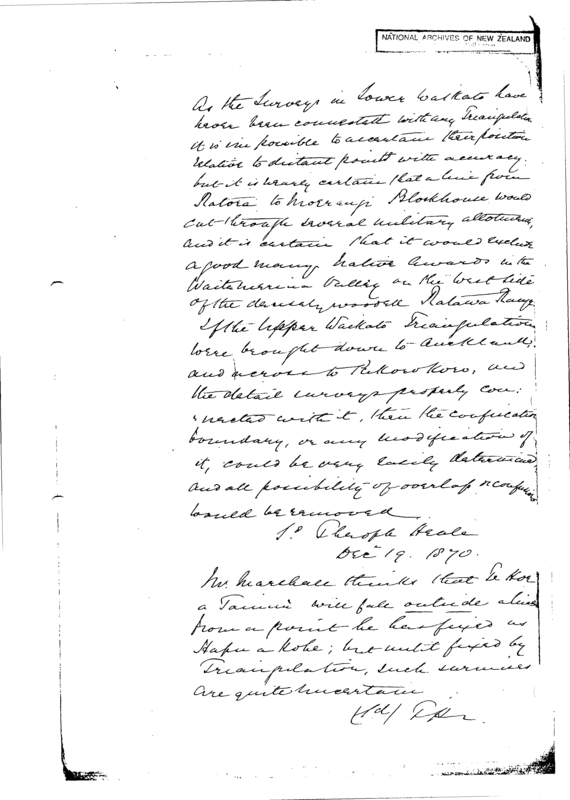 NATIONAL ARCHIVES OF NEW ZEALAND
As the Surveys in Lower Waikato have
never been connected with any Triangulation
it is impossible to ascertain their position
relative to distant points with accuracy.
but it is nearly certain that a line from
to Blockhouse would
cut through several military allotments,
and it is certain that it would exclude
a good many Native Awards in the
Valley on the West side
of the densely wooded Range
If the Upper Waikato Triangulation
were brought down to Auckland,
and across to Pukorokoro, and
the detail surveys properly con:
:nected with it, then the confiscation
boundary, or any modification of
it, could be very easily determined,
and all possibility of overlap or confusion
would be removed
Sd Theoph Heale
Decr 19. 1870.
Mr. Marshall thinks that Te Hoe
a Tainui will fall outside a line
from a point he has fixed as
Hapu a Kohe; but until fixed by
Triangulation, such surmises
are quite uncertain
(sd)